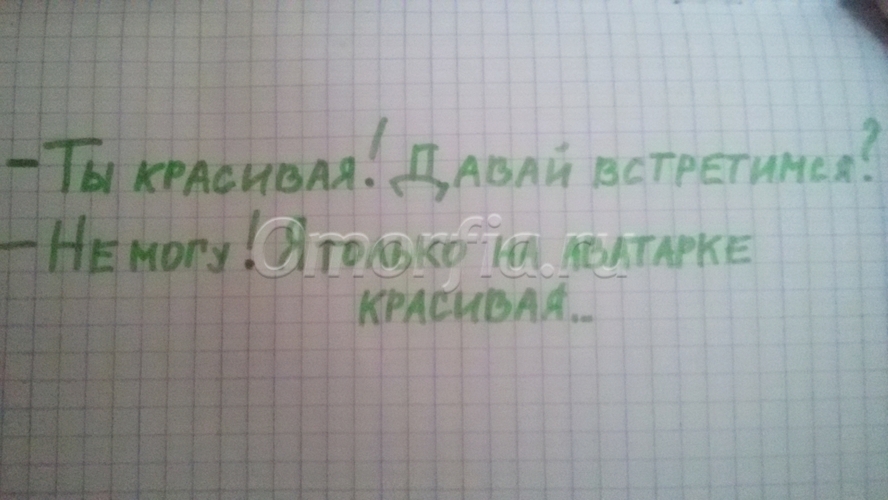 - Ты красивая! Давай встретимся?
- Не могу! Я только на аватарке
красивая...
Omorfia.ru